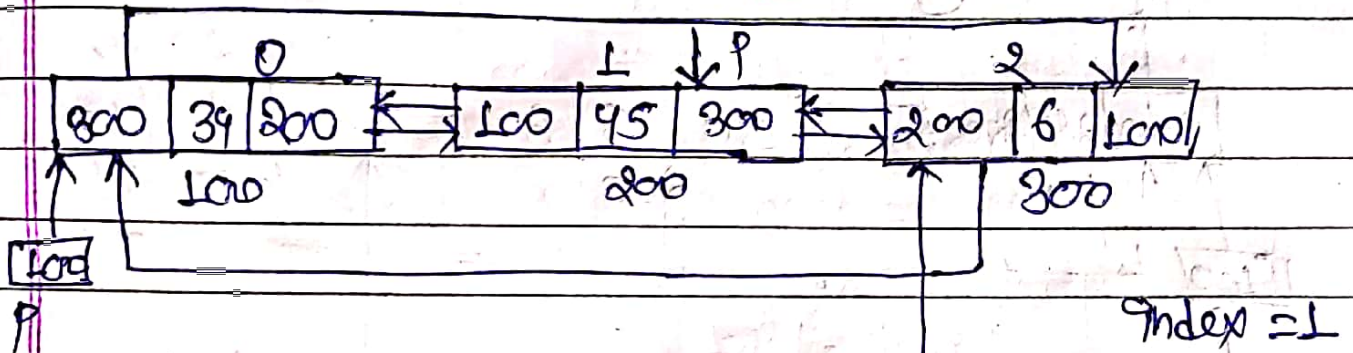 0 1 P 2
800 39 200 100 45 300 200 6 100
100 200 300
100
P Index = 1